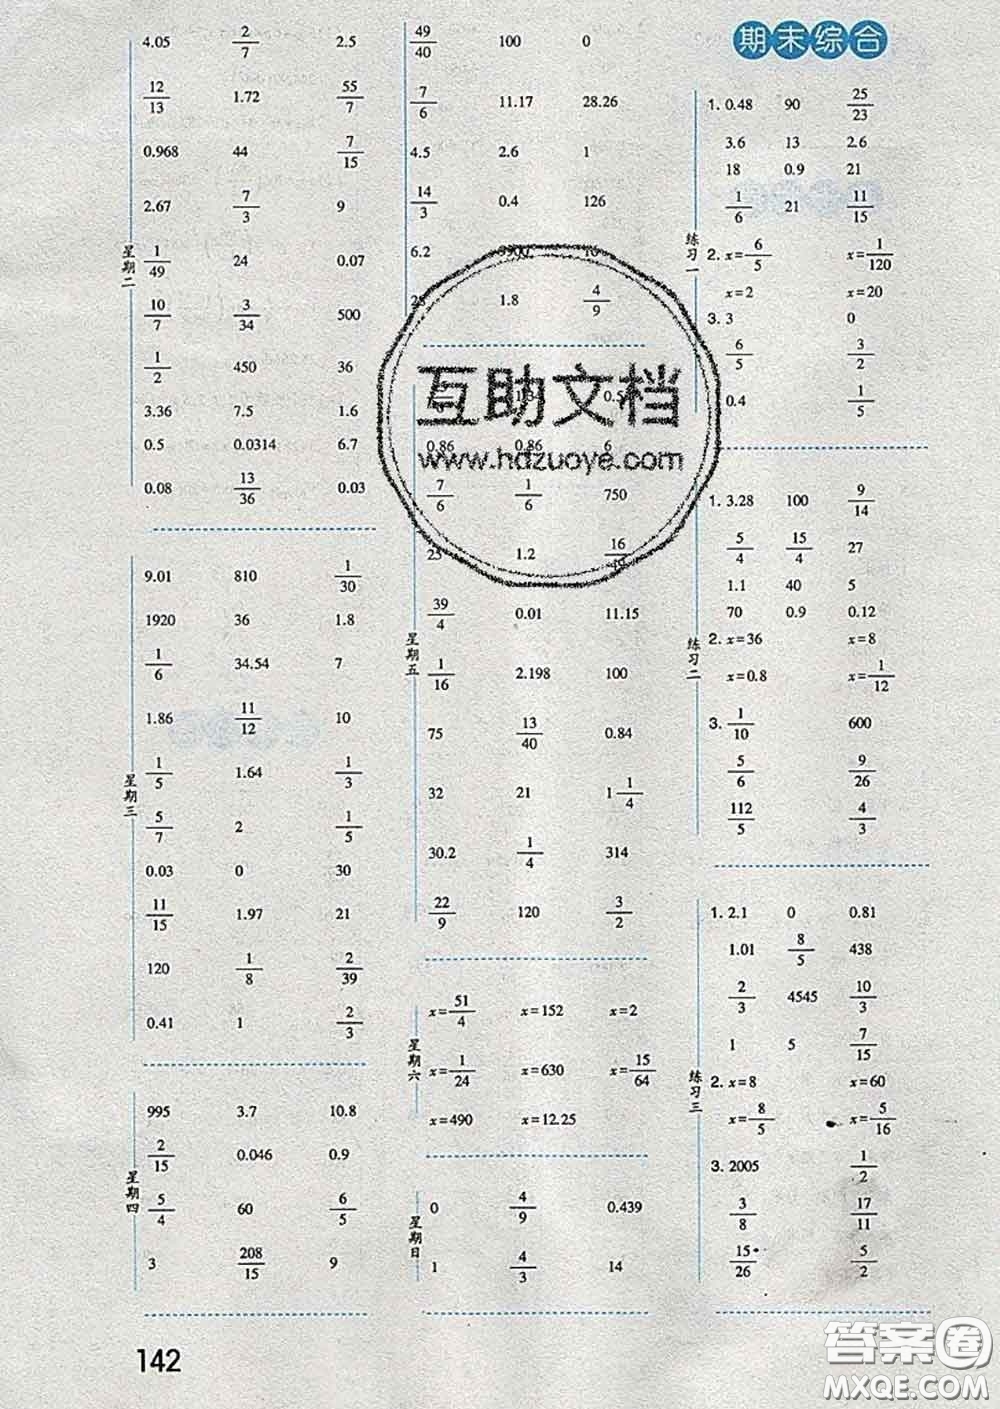 4.05 2/7 2.5
12/13 1.72 55/7
0.968 44 7/15
2.67 7/3 9
星期二
1/49 24 0.07
10/7 3/34 500
1/2 450 36
3.36 7.5 1.6
0.5 0.0314 6.7
0.08 13/36 0.03
9.01 810 1/30
1920 36 1.8
1/6 34.54 7
1.86 11/12 10
星期三
1/5 1.64 1/3
5/7 2 1/5
0.03 0 30
11/15 1.97 21
120 1/8 2/39
0.41 1 2/3
995 3.7 10.8
2/15 0.046 0.9
星期四
5/4 60 6/5
3 208/15 9
142
49/40 100 0
7/6 11.17 28.26
4.5 2.6 1
14/3 0.4 126
6.2
1.8 4/9
0.86 0.86 6
7/6 1/6 750
1.2
39/4 0.01 11.15
星期五
1/16 2.198 100
75 13/40 0.84
32 21 1 1/4
30.2 1/4 314
22/9 120 3/2
x=51/4 x=152 x=2
星期六
x=1/24 x=630 x=15/64
x=490 x=12.25
0 4/9 0.439
星期日
1 4/3 14
期末综合
1. 0.48 90 25/23
3.6 13 2.6
18 0.9 21
1/6 21 11/15
练习一
2. x=6/5 x=1/120
x=2 x=20
3. 3 0
6/5 3/2
0.4 1/5
1. 3.28 100 9/14
5/4 15/4 27
1.1 40 5
70 0.9 0.12
练习二
2. x=36 x=8
x=0.8 x=1/12
3. 1/10 600
5/6 9/26
112/5 4/3
1. 2.1 0 0.81
1.01 8/5 438
2/3 4545 10/3
1 5 7/15
练习三
2. x=8 x=60
x=8/5 x=5/16
3. 2005 1/2
3/8 17/11
15/26 5/2
互助文档
www.hdzuoye.com
答案圈
MXQE.COM